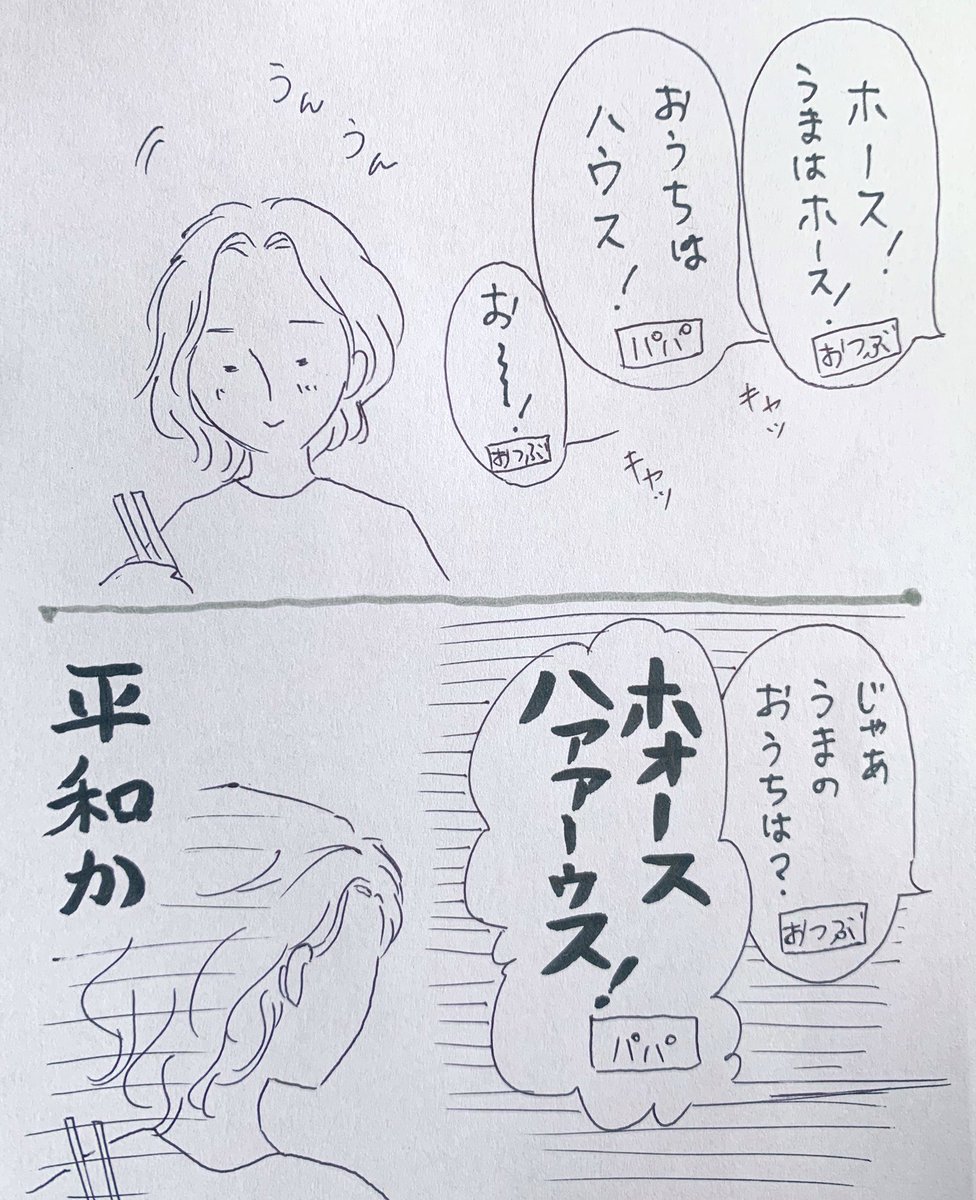 ホース!
うまはホース!
おつぶ
おうちは
ハウス!
パパ
お〜〜!
おつぶ
キャッ
キャッ
うん
うん
じゃあ
うまの
おうちは?
おつぶ
ホォース
ハァァァーゥス!
パパ
平和か